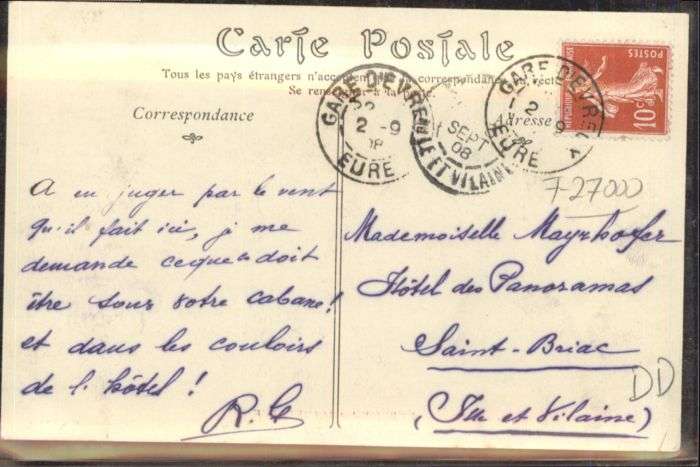 Carte Postale
Tous les pays étrangers n'acceptent pas la correspondance au recto
Se renseigner à la Poste
Correspondance
Adresse
GARE D'EVREUX
2 -9
08
EURE
SEPT
08
ILLE ET VILAINE
GARE D'EVREUX
2
9
EURE
REPUBLIQUE FRANÇAISE
POSTES
10c
F 27000
A en juger par le vent
qu'il fait ici, je me
demande ce que ce doit
être sous votre cabane!
et dans les couloirs
de l'hôtel!
R.G
Mademoiselle Mayrhofer
Hôtel des Panoramas
Saint-Briac
(Ille et Vilaine)
DD